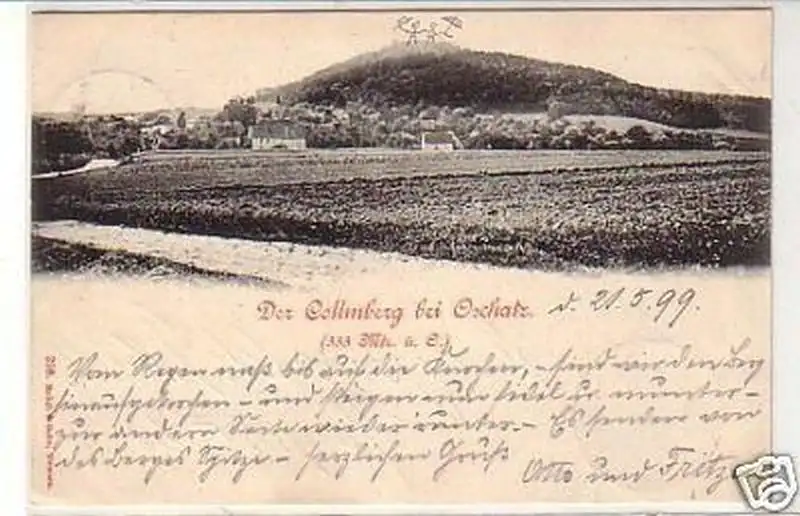 Der Collmberg bei Oschatz. d. 21.5.99.
(333 Mtr. ü. O.)
Vom Regen naß bis auf die Knochen, – sind wir den Berg
hinaufgekrochen – und steigen nun fidel u. munter –
zur andern Seite wieder runter. – Es senden von
des Berges Spitze – herzlichen Gruß
Otto und Fritz